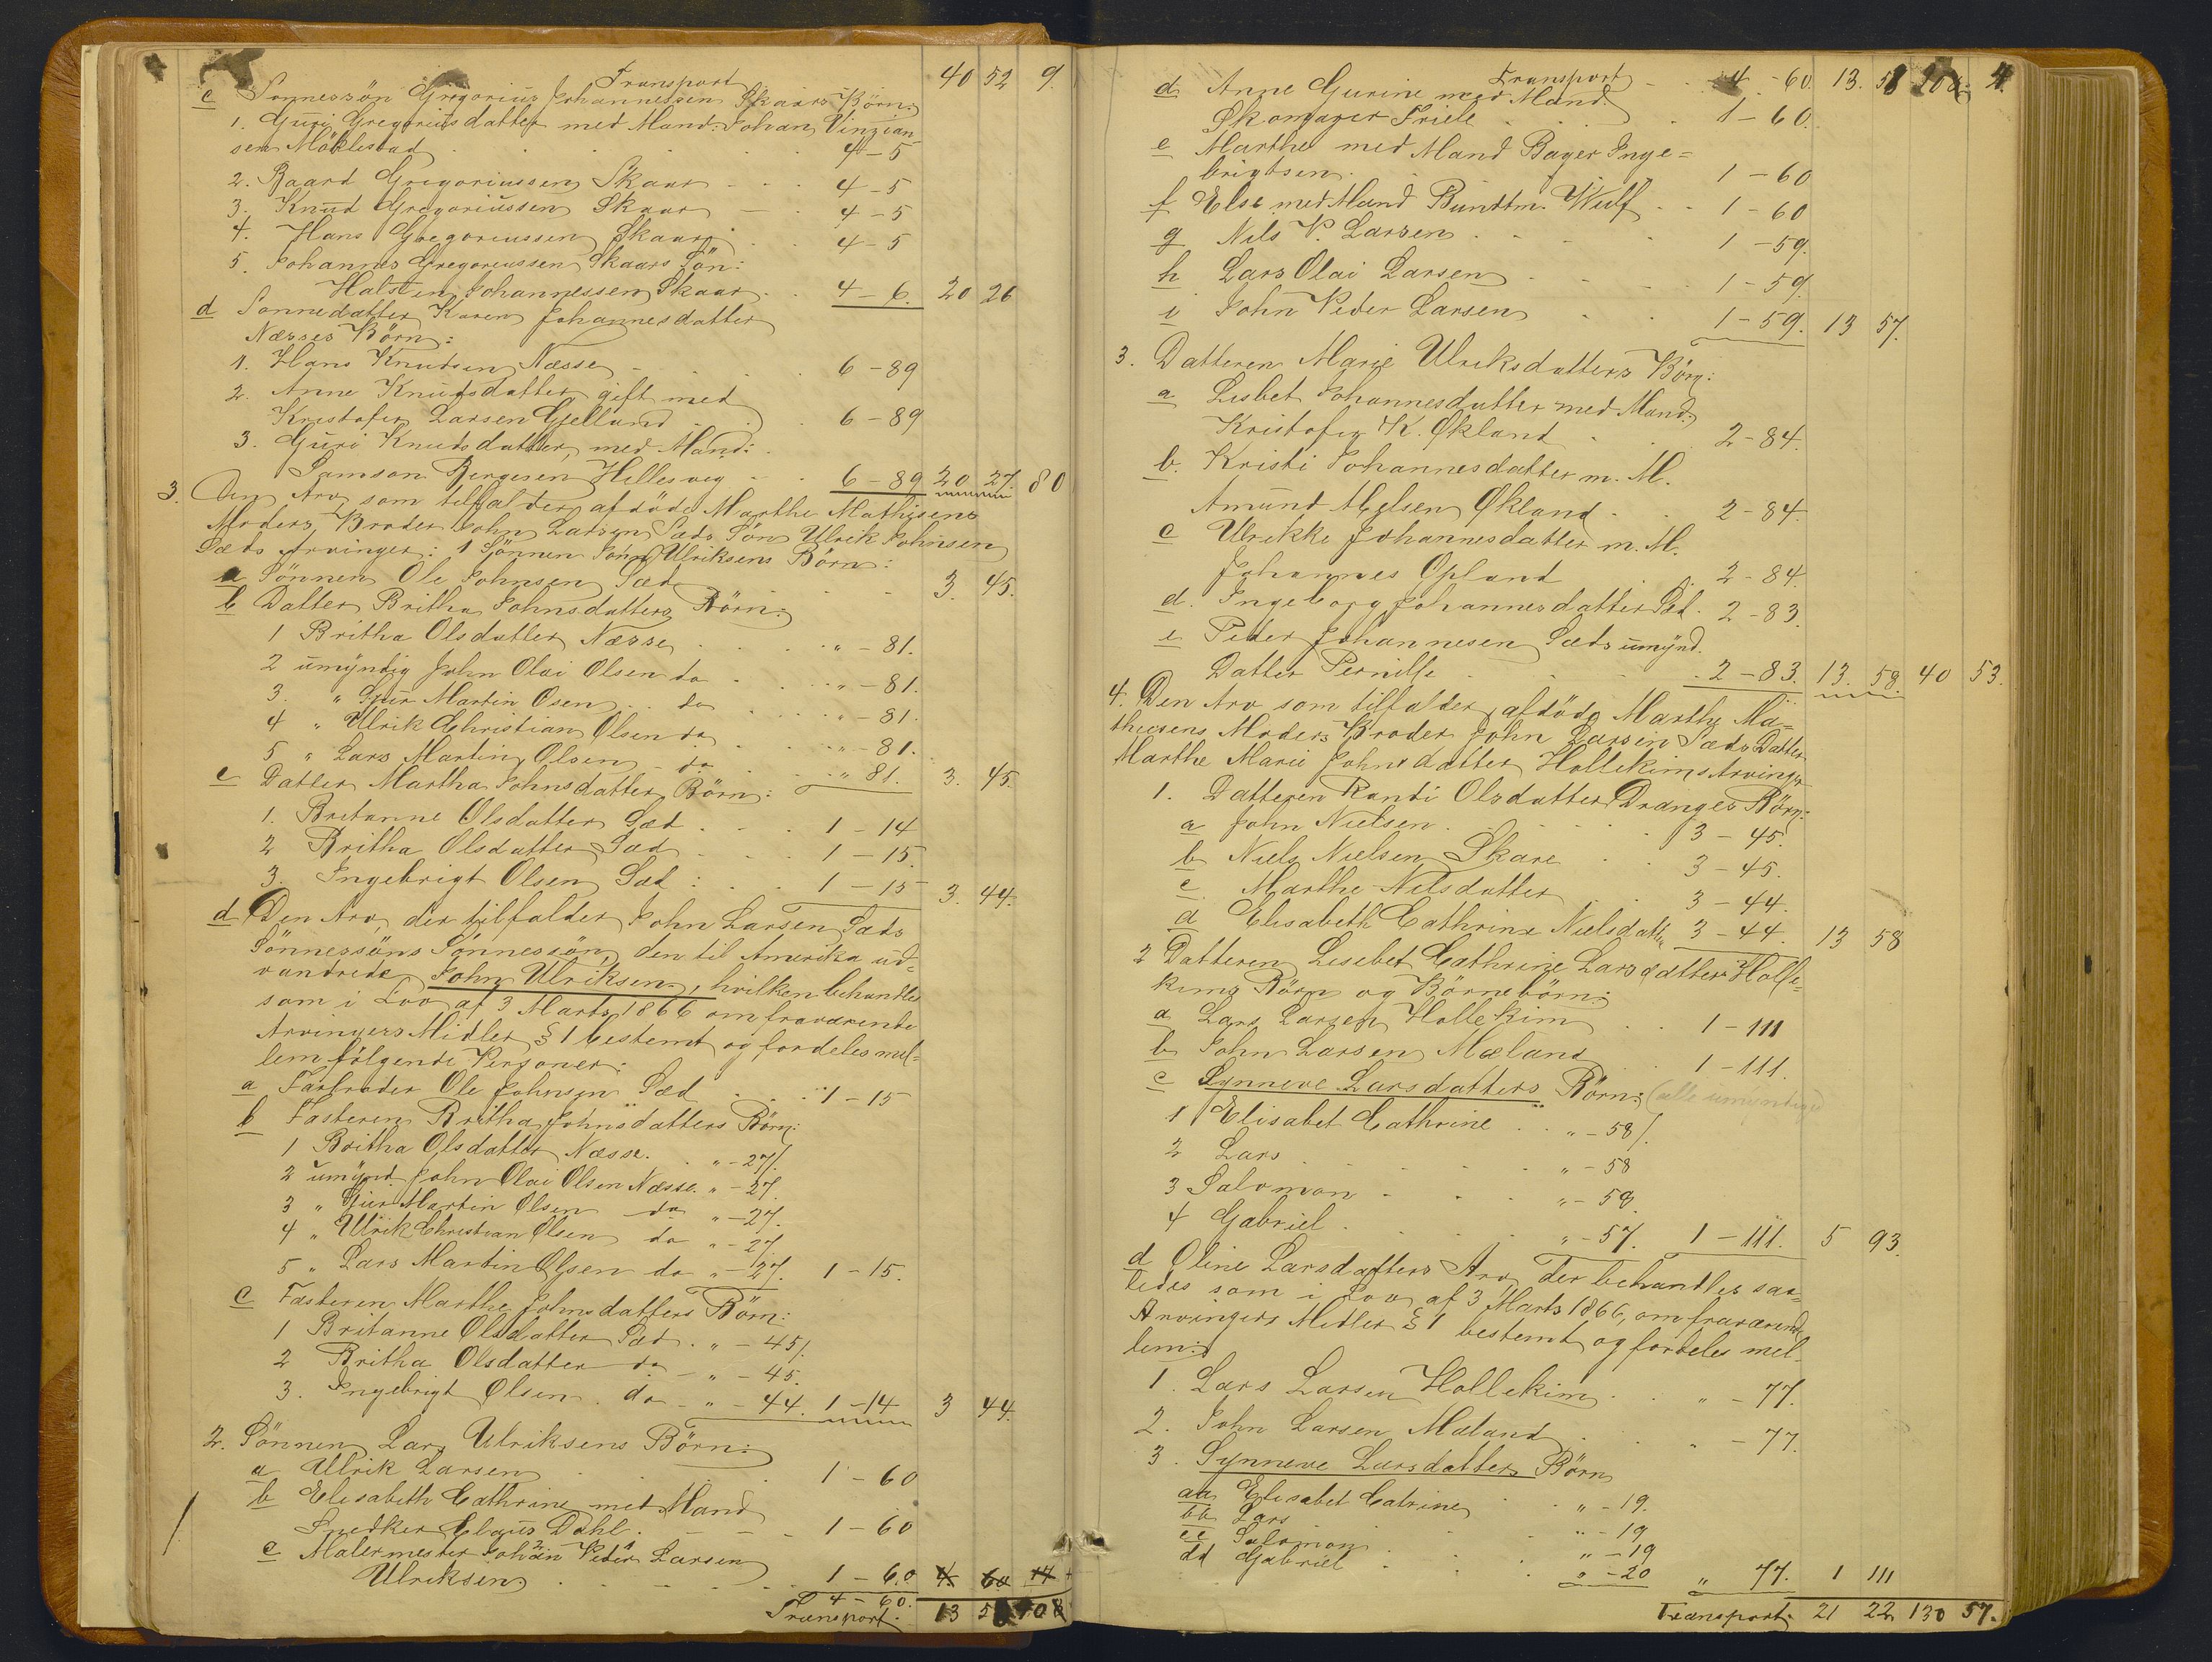 Transport 40 52 9.
c Sønnesøn Gregorius Johannessen Skaars Børn:
1. Guri Gregoriusdatter med Mand: Johan Vinzian
sen Møklestad . . . 4 - 5
2. Baard Gregoriussen Skaar . . 4 - 5
3. Knud Gregoriussen Skaar - . 4 - 5
4. Hans Gregoriussen Skaar . . 4 - 5
5. Johannes Gregoriussen Skaars Søn:
Halsten Johannessen Skaar . . 4 - 6. 20 26
d Sønnedatter Karen Johannesdatter
Næsses Børn:
1. Hans Knudsen Næsse . . . 6 - 89
2. Anne Knudsdatter gift med
Kristofer Larsen Gjelland . . 6 - 89
3. Guri Knudsdatter, med Mand:
Samson Bergesen Hillesveg . . 6 - 89 20 27. 80
3. Den Arv, som tilfalder afdøde Marthe Mathisens
Moders Broder John Larsen Sæds Søn Ulrik Johnsen
Sæds Arvinger: 1 Sønnen John Ulriksens Børn:
a Sønnen Ole Johnsen Sæd . . . 3. 45.
b Datter Britha Johnsdatters Børn:
1 Britha Olsdatter Næsse . . . " - 81.
2 umyndig John Olai Olsen do . . " - 81.
3. " Gjur Martin Osen . . do . . " - 81.
4 " Ulrik Christian Olsen do . . " - 81.
5 " Lars Martin Olsen - do . . " 81. 3. 45.
c Datter Martha Johnsdatter Børn:
1. Britanne Olsdatter Sæd . . . 1 - 14
2 Britha Olsdatter Sæd . . . 1 - 15.
3. Ingebrigt Olsen Sæd : . . 1 - 15 3. 44.
d Den Arv, der tilfalder John Larsen Sæds
Sønnesøns Sønnesøn, den til Amerika ud-
vandrede John Ulriksen, hvilken behandles
som i Lov af 3 Marts 1866 om fraværende
Arvingers Midler § 1 bestemt og fordeles mel-
lem følgende Personer:
a Farbroder Ole Johnsen Sæd . . . 1 - 15
b Fasteren Britha Johnsdatters Børn:
1 Britha Olsdatter Næsse. . " - 27.
2 umynd. John Olai Olsen Næsse. " - 27.
3 " Gjur Martin Olsen do " - 27.
4 " Ulrik Christian Olsen do " - 27.
5 " Lars Martin Olsen do " - 27. 1 - 15.
c Fasteren Marthe Johnsdatters Børn:
1 Britanne Olsdatter Sæd. " - 45.
2 Britha Olsdatter do - " - 45.
3. Ingebrigt Olsen. do - " - 44. 1 - 14 3 44.
2. Sønnen Lars Ulriksens Børn:
a Ulrik Larsen . . . 1 - 60
b Elisabeth Cathrine med Mand
Snedker Claus Dahl . - - 1 - 60
c Malermester Johan Peder Larsen
Ulriksen . . . 1 - 60 4. 60 14
4 - 60.
Transport. 13 58 108
Transport - . . 4 - 60. 13. 58 108. 4.
d Anne Gurine med Mand.
Skomager Friele . . . 1 - 60.
e Marthe med Mand Bager Inge=
brigtsen . . . 1 - 60
f Else med Mand Bundtm. Wulf . . 1 - 60
g Nils P. Larsen . . . 1 - 59.
h Lars Olai Larsen . . . 1 - 59.
i John Peder Larsen . . . 1 - 59. 13 57.
3. Datteren Marie Ulriksdatters Børn:
a Lisbet Johannesdatter med Mand:
Kristofer K. Økland . . . 2 - 84.
b. Kristi Johannesdatter m. M.
Amund Melsen Økland . . 2 - 84.
c Ulrikke Johannesdatter m. M.
Johannes Opland . . 2 - 84.
d. Ingeborg Johannesdatter Sæd. 2 - 83.
e Peder Johannesen Sæds umynd.
Datter Pernille . . . 2 - 83. 13. 58. 40 53.
4. Den Arv som tilfalder afdøde Marthe Ma=
thiesens Moders Broder John Larsen Sæds Datter
Marthe Marie Johnsdatter Hollekims Arvinger
1. Datteren Randi Olsdatter Dranges Børn:
a John Nielsen . . . 3 - 45.
b Niels Nielsen Skare . . 3 - 45.
c. Marthe Nilsdatter . . 3 - 44.
d Elisabeth Cathrine Nielsdatter 3 - 44. 13 58
2 Datteren Lisebet Cathrine Larsdatter Holle=
kims Børn og Børnebørn:
a Lars Larsen Hollekim . . 1 - 111
b John Larsen Mæland . . 1 - 111.
c Synneve Larsdatters Børn: (alle umyndige)
1 Elisabet Cathrine . . " - 58.
2 Lars . . . " - 58
3 Salomon . . . " - 58.
4 Gabriel . . . " - 57. 1 - 111. 5 93.
d Oline Larsdatters Arv, der behandles saa=
ledes som i Lov af 3 Marts 1866, om fraværende
Arvingers Midler § 1 bestemt og fordeles mel-
lem:
1. Lars Larsen Hollekim . . " - 77.
2. John Larsen Mæland . . " - 77.
3. Synneve Larsdatters Børn
aa Elisabet Catrine . . " - 19.
bb Lars . . . " - 19
cc Salomon . . . " - 19
dd Gabriel . . . " - 20 " 77. 1 111
Transport. 21 22 130 57.